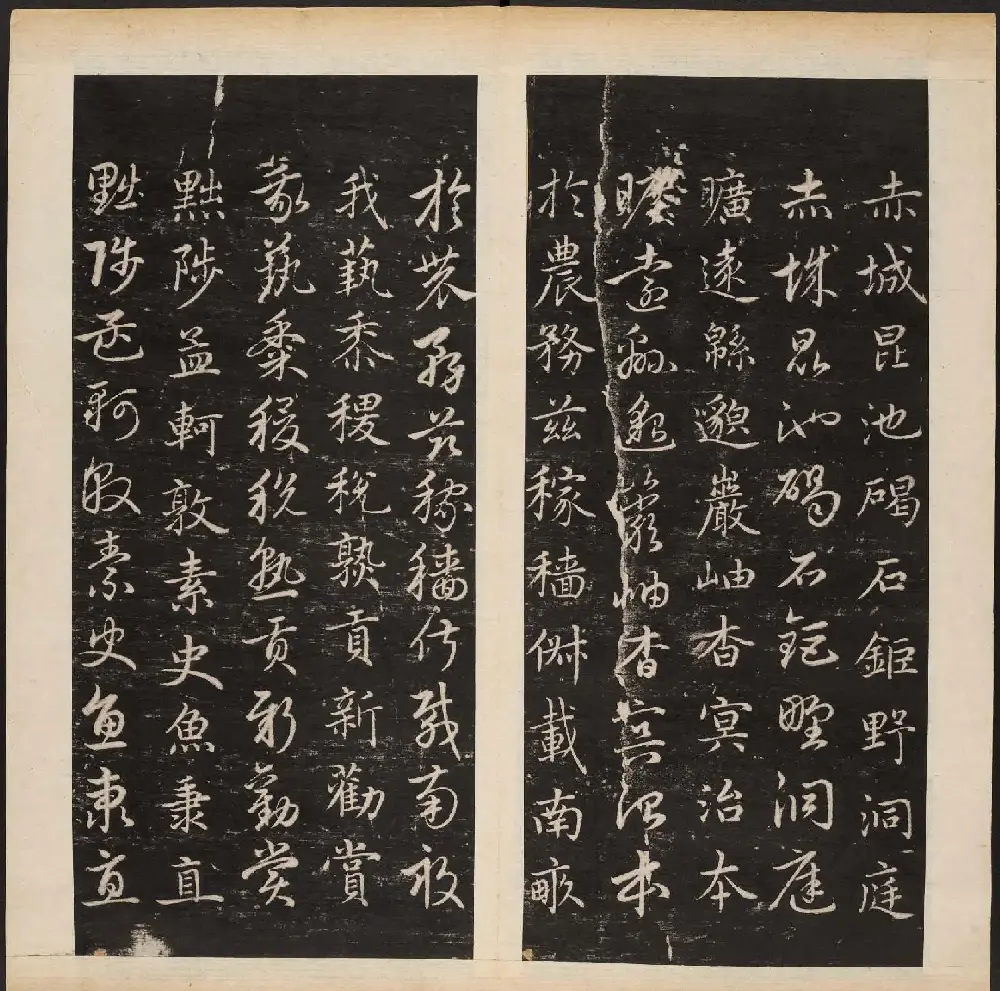 赤城昆池碣石鉅野洞庭
赤城昆池碣石鉅野洞庭
曠遠緜邈巖岫杳冥治本
曠遠緜邈巖岫杳冥治本
於農務茲稼穡俶載南畝
於農務茲稼穡俶載南畝
我藝黍稷稅熟貢新勸賞
我藝黍稷稅熟貢新勸賞
黜陟孟軻敦素史魚秉直
黜陟孟軻敦素史魚秉直